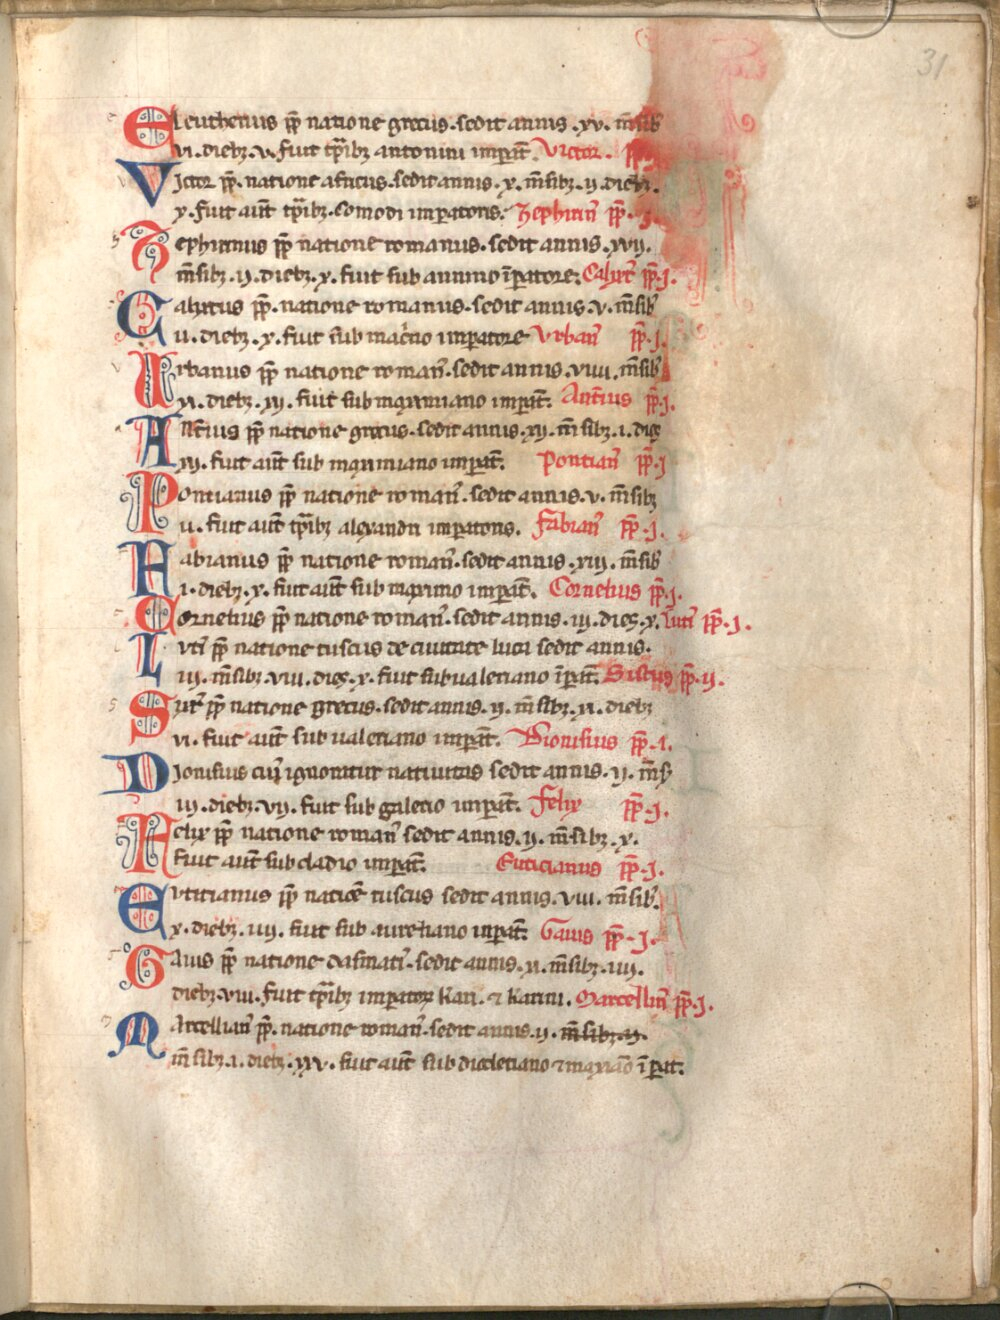 31
Eleutherius pp̄ natione grecus. sedit annis .xv. m̄sib
vi. dieb₃. v. fuit tp̄ib₃ antonini imꝑat̄. Victor. pp̄
Victor pp̄. natione africus. sedit annis. x. m̄sib₃. ii. dieb₃.
x. fuit aut̄ tp̄ib₃. Comodi imꝑatoris. Zephirin᷒ pp̄. j.
Zephirinus pp̄ natione romanus. sedit annis. xvij.
m̄sib₃. ij. dieb₃. x. fuit sub antonino īꝑatore. Calixt᷒ pp̄. j.
Calixtus pp̄. natione romanus. sedit annis. v. m̄sib᷒
ij. dieb₃. x. fuit sub mac̄no imꝑatore Vrban᷒ pp̄. j.
Urbanus pp̄ natione roman᷒. sedit annis. viiij. m̄sib᷒
xi. dieb₃. xij. fuit sub maximiano imꝑat̄. Ant̄ius pp̄. j.
Ant̄ius pp̄ natione grecus. sedit annis. xij. m̄sib₃. i. dies
xij. fuit aut̄ sub maximiano imꝑat̄. Pontian᷒ pp̄. j
Pontianus pp̄ natione roman᷒. sedit annis. v. m̄sib₃
ii. fuit aut̄ tp̄ib₃ alexandri imꝑatoris. Fabian᷒ pp̄. j.
Fabianus pp̄ natione roman᷒. sedit annis. xiij. m̄sib᷒
i. dieb₃. x. fuit aut̄ sub maximo imꝑat̄. Cornelius pp̄. j.
Cornelius pp̄ natione roman᷒. sedit annis. iij. dies. x. Luti᷒ pp̄. j.
Luti᷒ pp̄ natione tuscus de ciuitate luca sedit annis.
iij. m̄sib₃. viii. dies. x. fuit sub ualeriano īꝑat̄. Sistus pp̄. ij.
Sixt᷒ pp̄ natione grecus. sedit annis. ij. m̄sib₃. xi. dieb₃
vi. fuit aut̄ sub ualeriano imꝑat̄. Dionisius pp̄. i.
Dionisius cui᷒ ignoratur natiuitas sedit annis. ij. m̄s᷒
iii. dieb₃. vij. fuit sub galieno imꝑat̄. Felix pp̄. j.
Felix pp̄ natione roman᷒ sedit annis. ij. m̄sib₃. x.
fuit aut̄ sub cladio imꝑat̄. Euticianus pp̄. j.
Eutitianus pp̄ natiōe tuscus sedit annis. viii. m̄sib᷒.
x. dieb₃. iiij. fuit sub aureliano imꝑat̄. Gaius pp̄. j.
Gaius pp̄ natione dasmati᷒. sedit annis. xi. m̄sib₃. iiij.
dieb₃. viii. fuit tp̄ib₃ imꝑatoꝝ Kari. ⁊ Karini. Marcellin᷒ pp̄. j.
Marcellian᷒ pp̄. natione roman᷒. sedit annis. ij. m̄sib₃. ij.
m̄sib₃. i. dieb₃. xxv. fuit aut̄ sub diocletiano ⁊ maxiāo īꝑat.